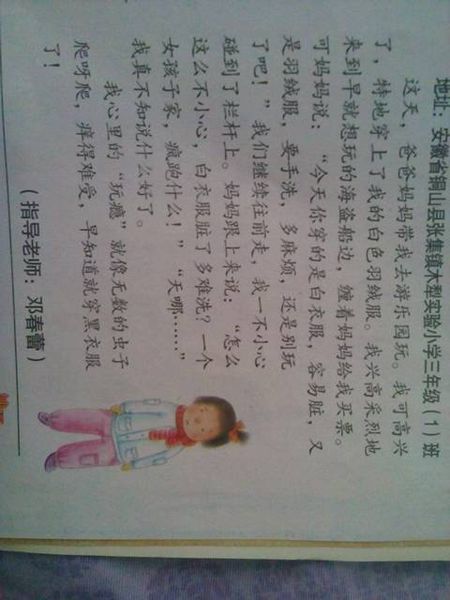 地址：安徽省铜山县张集镇木犁实验小学三年级（1）班
这天，爸爸妈妈带我去游乐园玩。我可高兴
了，特地穿上了我的白色羽绒服。我兴高采烈地
来到早就想玩的海盗船边，缠着妈妈给我买票。
可妈妈说：“今天你穿的是白衣服，容易脏，又
是羽绒服，要手洗，多麻烦，还是别玩
了吧！”我们继续往前走，我一不小心
碰到了栏杆上。妈妈跟上来说：“怎么
这么不小心，白衣服脏了多难洗？一个
女孩子家，疯跑什么！”“天哪……”
我真不知说什么好了。
我心里的“玩瘾”就像无数的虫子
爬呀爬，痒得难受，早知道就穿黑衣服
了！
（指导老师：邓春蕾）